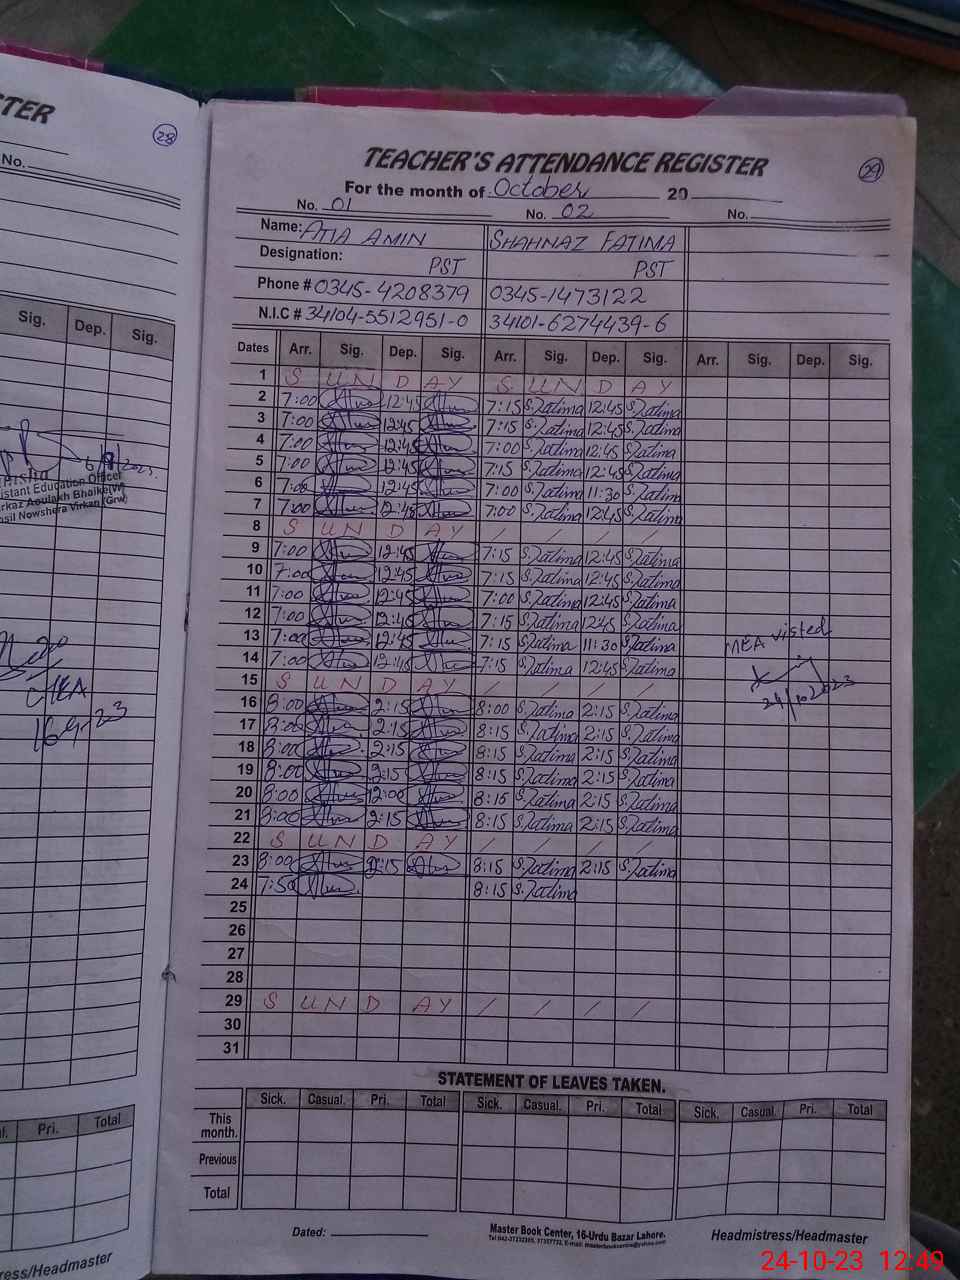 TER
28
No.
Sig. Dep. Sig.
6/9/2023
istant Education Officer
rkaz Aoulakh Bhaike(W)
sil Nowshera Virkan (Grw)
MEA
16-9-23
Pri. Total
s/Headmaster
TEACHER'S ATTENDANCE REGISTER
29
For the month of October 20
No. 01 No. 02 No.
Name: ATIA AMIN SHAHNAZ FATIMA
Designation: PST PST
Phone # 0345-4208379 0345-1473122
N.I.C # 34104-5512951-0 34101-6274439-6
Dates Arr. Sig. Dep. Sig. Arr. Sig. Dep. Sig. Arr. Sig. Dep. Sig.
1 S U N D A Y S U N D A Y
2 7:00 12:45 7:15 S.Fatima 12:45 S.Fatima
3 7:00 12:45 7:15 S.Fatima 12:45 S.Fatima
4 7:00 12:45 7:00 S.Fatima 12:45 S.Fatima
5 7:00 12:45 7:15 S.Fatima 12:45 S.Fatima
6 7:00 12:45 7:00 S.Fatima 11:30 S.Fatima
7 7:00 12:45 7:00 S.Fatima 12:45 S.Fatima
8 S U N D A Y / / / /
9 7:00 12:45 7:15 S.Fatima 12:45 S.Fatima
10 7:00 12:45 7:15 S.Fatima 12:45 S.Fatima
11 7:00 12:45 7:00 S.Fatima 12:45 S.Fatima
12 7:00 12:45 7:15 S.Fatima 12:45 S.Fatima
13 7:00 12:45 7:15 S.Fatima 11:30 S.Fatima
14 7:00 12:45 7:15 S.Fatima 12:45 S.Fatima
15 S U N D A Y / / / /
16 8:00 2:15 8:00 S.Fatima 2:15 S.Fatima
17 8:00 2:15 8:15 S.Fatima 2:15 S.Fatima
18 8:00 2:15 8:15 S.Fatima 2:15 S.Fatima
19 8:00 2:15 8:15 S.Fatima 2:15 S.Fatima
20 8:00 12:00 8:15 S.Fatima 2:15 S.Fatima
21 8:00 2:15 8:15 S.Fatima 2:15 S.Fatima
22 S U N D A Y / / / /
23 8:00 2:15 8:15 S.Fatima 2:15 S.Fatima
24 7:50 8:15 S.Fatima
25
26
27
28
29 S U N D A Y / / / /
30
31
MEA visted
24/10 2023
STATEMENT OF LEAVES TAKEN.
Sick. Casual. Pri. Total Sick. Casual. Pri. Total Sick. Casual. Pri. Total
This month.
Previous
Total
Dated:
Master Book Center, 16-Urdu Bazar Lahore.
Headmistress/Headmaster
24-10-23 12:49